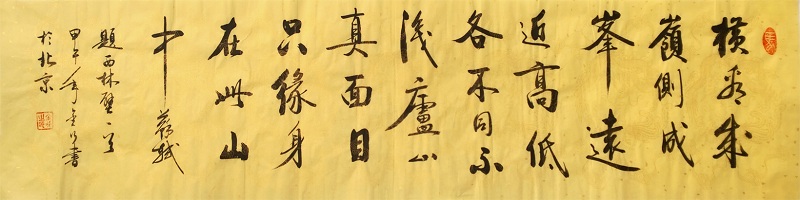 橫看成
嶺側成
峯遠
近高低
各不同不
識廬山
真面目
只緣身
在此山
中 蘇軾
題西林壁一首
甲午年書
於北京